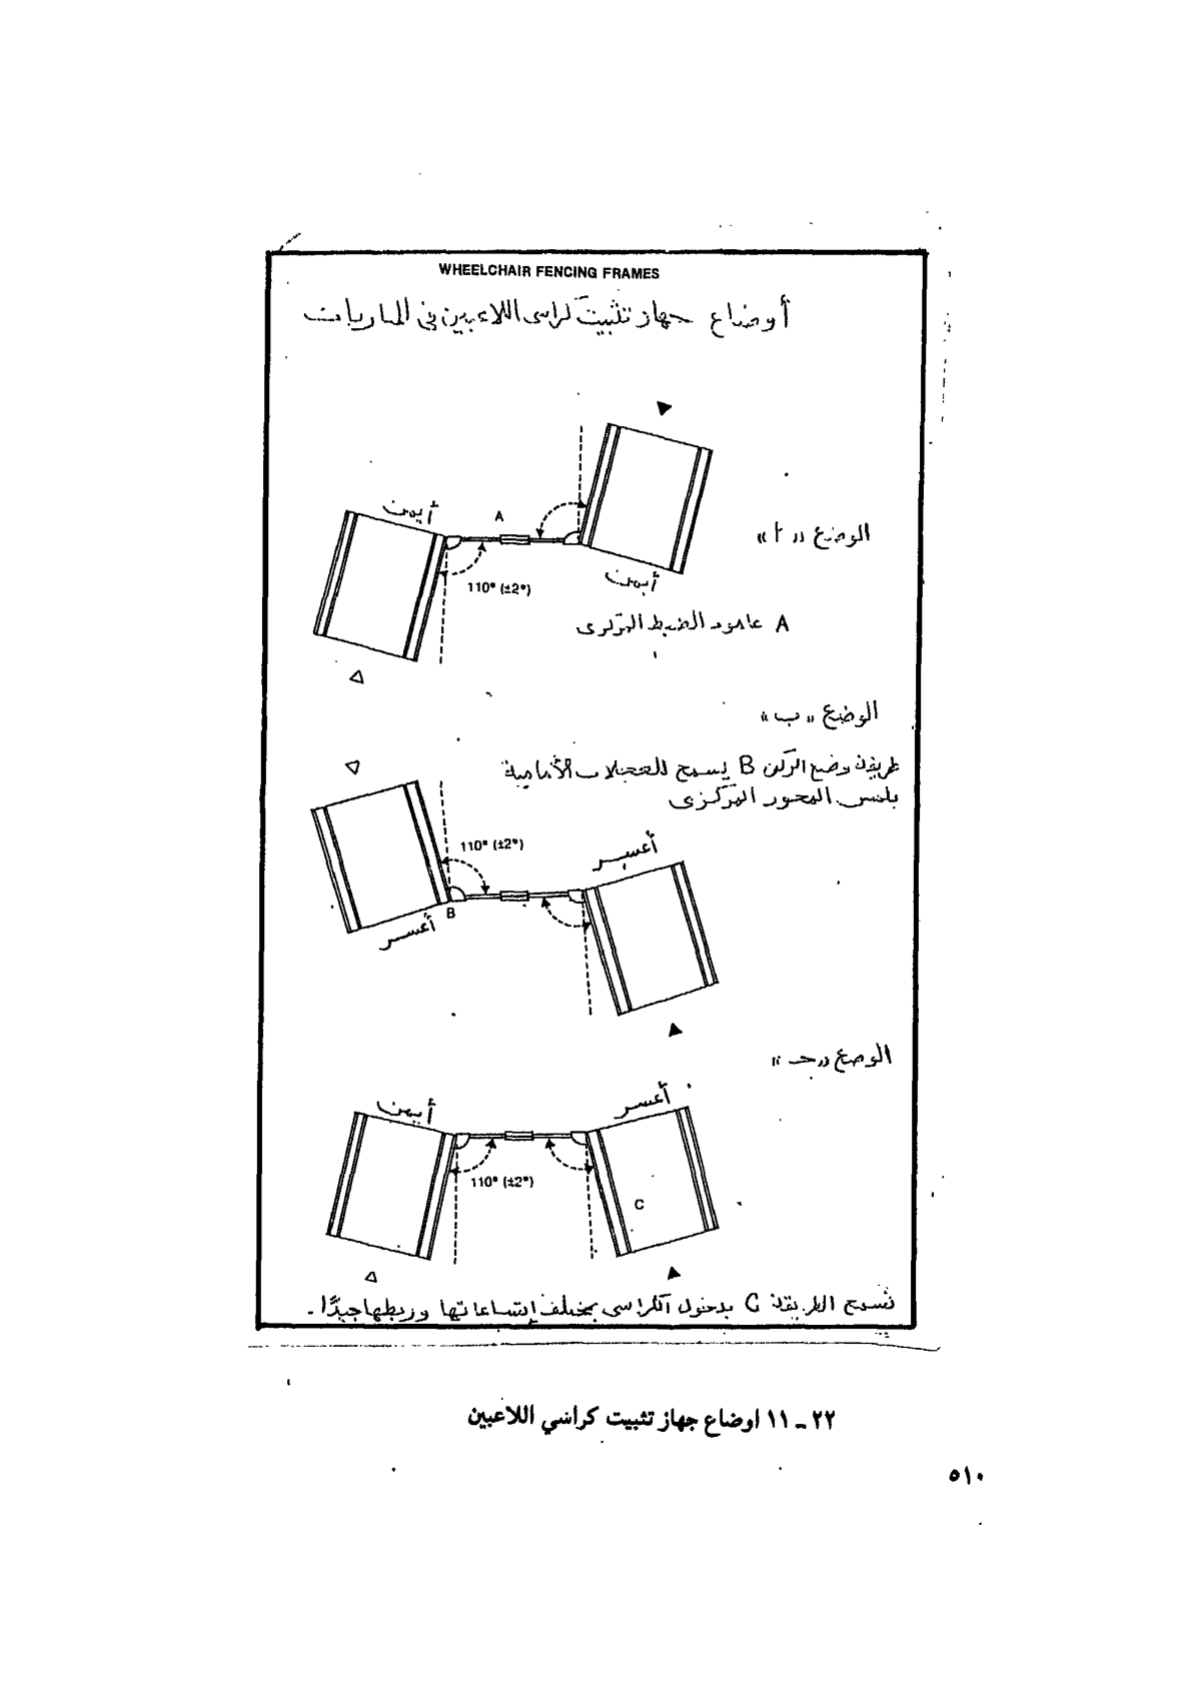 WHEELCHAIR FENCING FRAMES
أوضاع جهاز تثبيت كراسى اللاعبين فى المباريات
أيمن
A
110° (±2°)
أيمن
الوضع «أ»
A عامود الضبط المركزى
الوضع «ب»
طريقة وضع الركن B يسمح للعجلات الأمامية
بلمس المحور المركزى
110° (±2°)
أعسر
B
أعسر
الوضع «جـ»
أيمن
أعسر
110° (±2°)
C
تسمح الطريقة C بدخول الكراسى بمختلف إتساعاتها وربطها جيدًا.
٢٢ ـ ١١ اوضاع جهاز تثبيت كراسي اللاعبين
٥١٠